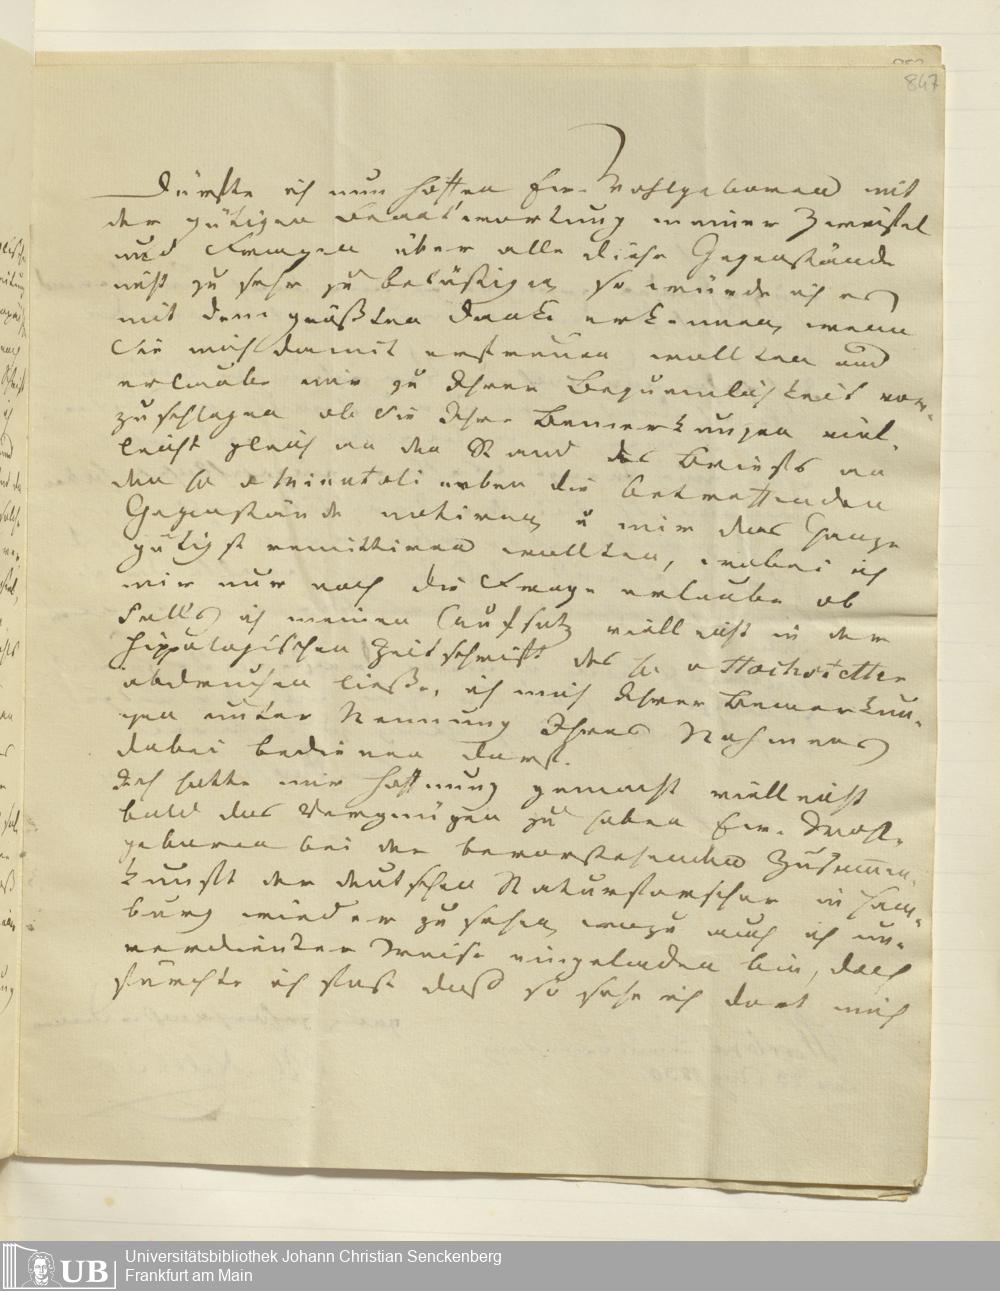 847
Dürfte ich nun hoffen Ew. Wohlgeboren mit
der gütigen Beantwortung meiner Zweifel
und Fragen über alle diese Gegenstände
nicht zu sehr zu belästigen so würde ich es
mit dem größten Danke erkennen, wenn
Sie mich damit erfreuen wollten und
erlaube mir zu Ihrer Bequemlichkeit vor-
zuschlagen ob Sie Ihre Bemerkungen viel-
leicht gleich an den Rand des Briefs an
den H v Minutoli neben die betreffenden
Gegenstände notiren, u mir das Ganze
gütigst remittiren wollten, wobei ich
mir nur noch die Frage erlaube ob
Falls ich meinen Aufsatz vielleicht in der
hippologischen Zeitschrift des H v Hochstetter
abdrucken ließe, ich mich Ihrer Bemerkun-
gen unter Nennung Ihres Nahmens
dabei bedienen darf.
Ich hatte mir Hoffnung gemacht vielleicht
bald das Vergnügen zu haben Ew. Wohl-
geboren bei der bevorstehenden Zusammen-
kunft der deutschen Naturforscher in Ham-
burg wieder zu sehen, wozu auch ich un-
verdienter Weise eingeladen bin, doch
fürchte ich fast daß so sehr ich dort mich
UB
Universitätsbibliothek Johann Christian Senckenberg
Frankfurt am Main